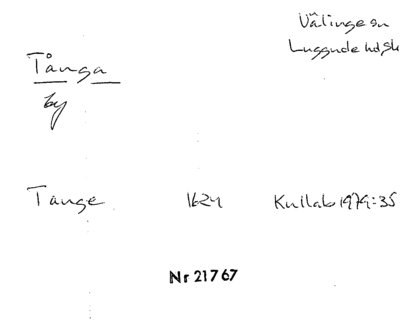 Välinge sn
Luggude hd, Sk
Tånga
by
Tange 1624 Kullab 1979:35
Nr 21767